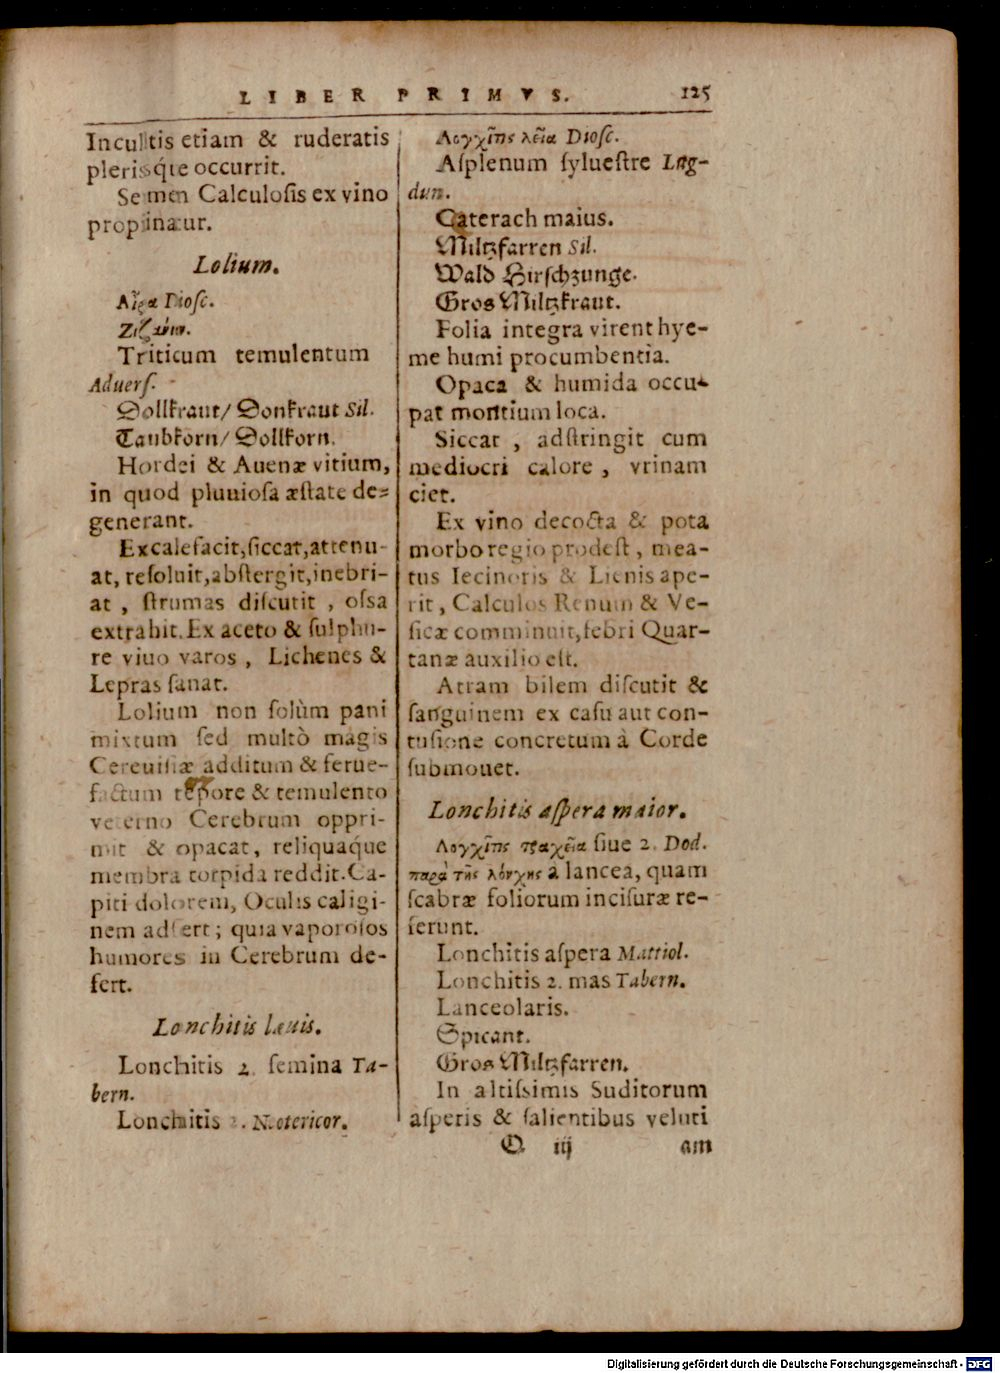 LIBER PRIMVS. 125
Incultis etiam & ruderatis
plerisq́ue occurrit.
Semen Calculosis ex vino
propinatur.
Lolium.
Αἶρα Diosc.
Ζιζάνιον.
Triticum temulentum
Aduers.
Dollkraut/ Donkraut Sil.
Taubkorn/ Dollkorn.
Hordei & Auenæ vitium,
in quod pluuiosa æstate de-
generant.
Excalefacit, siccat, attenu-
at, resoluit, abstergit, inebri-
at, strumas discutit, ossa
extrahit. Ex aceto & sulphu-
re viuo varos, Lichenes &
Lepras sanat.
Lolium non solùm pani
mixtum sed multò magis
Cereuisiæ additum & ferue-
factum tepore & temulento
veterno Cerebrum oppri-
mit & opacat, reliquaq́ue
membra torpida reddit. Ca-
piti dolorem, Oculis caligi-
nem adfert; quia vaporosos
humores in Cerebrum de-
fert.
Lonchitis læuis.
Lonchitis 2. femina Ta-
bern.
Lonchitis 2. Neotericor.
Λογχῖτις λεῖα Diosc.
Asplenum syluestre Lug-
dun.
Caterach maius.
Miltzfarren Sil.
Wald Hirschzunge.
Gros Miltzkraut.
Folia integra virent hye-
me humi procumbentia.
Opaca & humida occu-
pat montium loca.
Siccat, adstringit cum
mediocri calore, vrinam
ciet.
Ex vino decocta & pota
morbo regio prodest, mea-
tus Iecinoris & Lienis ape-
rit, Calculos Renum & Ve-
sicæ comminuit, febri Quar-
tanæ auxilio est.
Atram bilem discutit &
sanguinem ex casu aut con-
tusione concretum à Corde
submouet.
Lonchitis aspera maior.
Λογχῖτις τραχεῖα siue 2. Dod.
παρὰ τῆς λόγχης à lancea, quam
scabræ foliorum incisuræ re-
ferunt.
Lonchitis aspera Mattiol.
Lonchitis 2. mas Tabern.
Lanceolaris.
Spicant.
Gros Miltzfarren.
In altissimis Suditorum
asperis & salientibus veluti
Q iij am
Digitalisierung gefördert durch die Deutsche Forschungsgemeinschaft - DFG